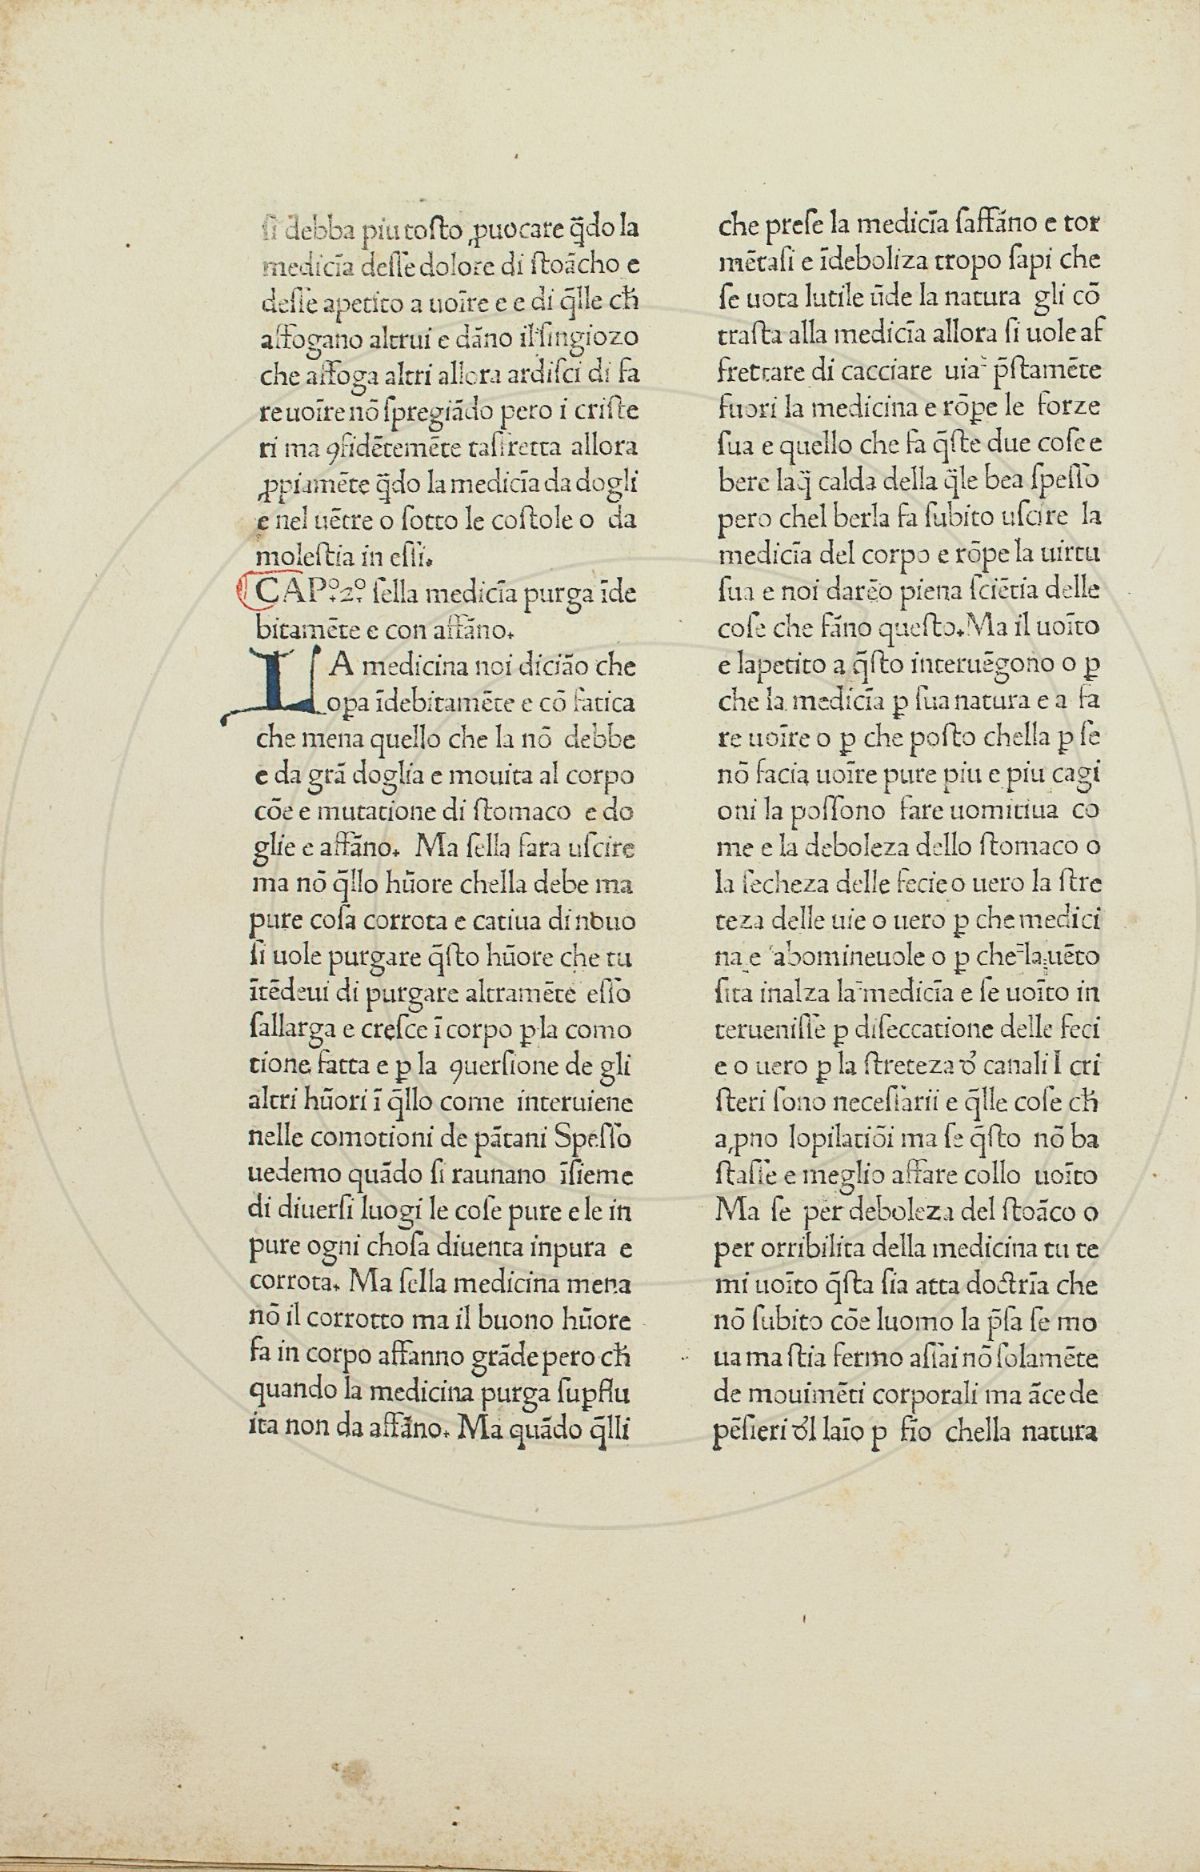 ſi debba piu toſto ꝓuocare q̄do la
medicīa deſſe dolore di ſtoācho e
deſſe apetito a uoīre e e di q̄lle cħ
affogano altrui e dāno il ſingiozo
che affoga altri allora ardiſci di fa
re uoīre nō ſpregiādo pero i criſte
ri ma ꝯfidētemēte taſſretta allora
ꝓpiamēte q̄do la medicīa da dogli
e nel uētre o ſotto le coſtole o da
moleſtia in eſſi.
CAP.º 2.º ſella medicīa purga īde
bitamēte e con affāno.
LA medicina noi diciāo che
opa īdebitamēte e cō fatica
che mena quello che la nō debbe
e da grā doglia e mouita al corpo
cōe e mutatione di ſtomaco e do
glie e affāno. Ma ſella fara uſcire
ma nō q̄llo hūore chella debe ma
pure coſa corrota e catiua di nouo
ſi uole purgare q̄ſto hūore che tu
ītēdeui di purgare altramēte eſſo
ſallarga e creſce ī corpo ꝑ la como
tione fatta e ꝑ la ꝯuerſione de gli
altri hūori ī q̄llo come interuiene
nelle comotioni de pātani Speſſo
uedemo quādo ſi raunano īſieme
di diuerſi luogi le coſe pure e le in
pure ogni choſa diuenta inpura e
corrota. Ma ſella medicina mena
nō il corrotto ma il buono hūore
fa in corpo affanno grāde pero cħ
quando la medicina purga ſuꝑflu
ita non da affāno. Ma quādo q̄lli
che preſe la medicīa ſaffāno e tor
mētaſi e īdeboliza tropo ſapi che
ſe uota lutile ūde la natura gli cō
traſta alla medicīa allora ſi uole af
frettare di cacciare uia p̄ſtamēte
fuori la medicina e rōpe le forze
ſua e quello che fa q̄ſte due coſe e
bere laq̄ calda della q̄le bea ſpeſſo
pero chel berla fa ſubito uſcire la
medicīa del corpo e rōpe la uirtu
ſua e noi darēo piena ſciētia delle
coſe che fāno queſto. Ma il uoīto
e lapetito a q̄ſto interuēgono o ꝑ
che la medicīa ꝑ ſua natura e a fa
re uoīre o ꝑ che poſto chella ꝑ ſe
nō facia uoīre pure piu e piu cagi
oni la poſſono fare uomitiua co
me e la deboleza dello ſtomaco o
la ſecheza delle fecie o uero la ſtre
teza delle uie o uero ꝑ che medici
na e abomineuole o ꝑ che la uēto
ſita inalza la medicīa e ſe uoīto in
terueniſſe ꝑ diſeccatione delle feci
e o uero ꝑ la ſtreteza đ canali I cri
ſteri ſono neceſſarii e q̄lle coſe cħ
aꝓno lopilatiōi ma ſe q̄ſto nō ba
ſtaſſe e meglio affare collo uoīto
Ma ſe per deboleza del ſtoāco o
per orribilita della medicina tu te
mi uoīto q̄ſta ſia atta doctrīa che
nō ſubito cōe luomo la p̄ſa ſe mo
ua ma ſtia fermo aſſai nō ſolamēte
de mouimēti corporali ma āce de
pēſieri đl laīo ꝑ fio chella natura